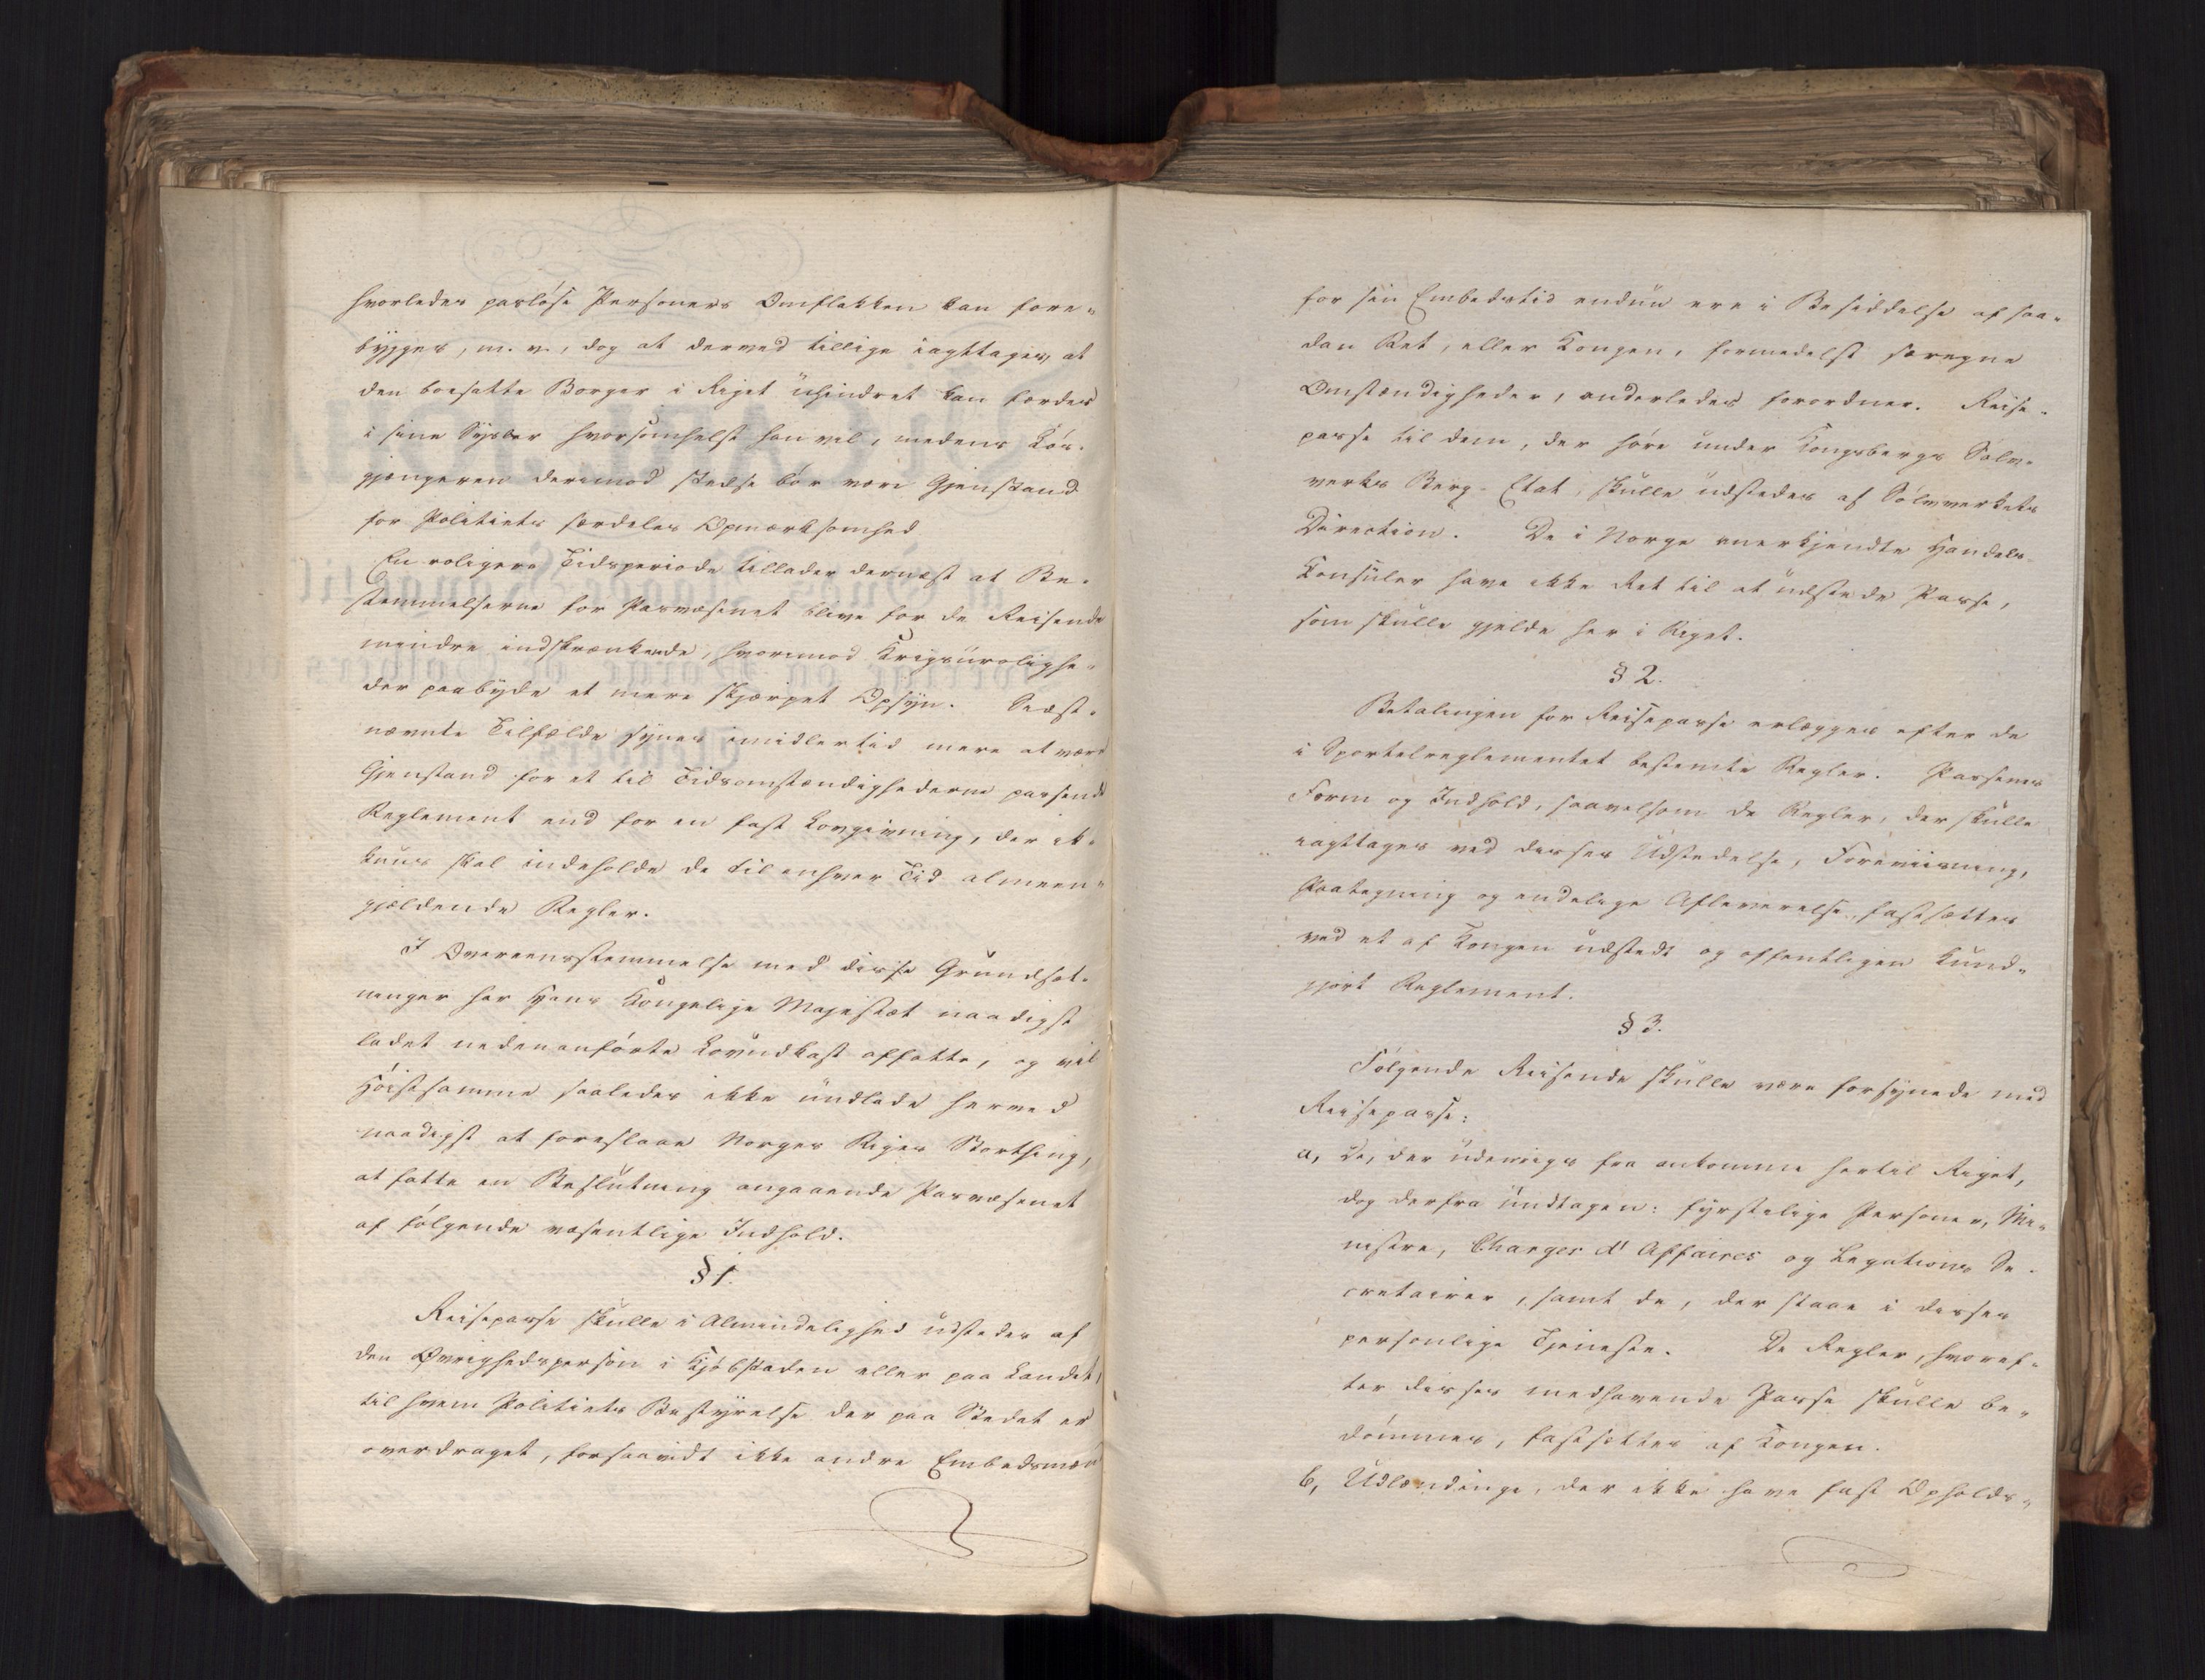 hvorledes pasløse Personers Omflakken kan fore-
bygges, m. v., dog at derved tillige iagttages, at
den boesatte Borger i Riget uhindret kan færdes
i sine Sysler hvorsomhelst han vil, medens Løs-
gjængeren derimod stedse bør være Gjenstand
for Politiets særdeles Opmærksomhed
En roligere Tidsperiode tillader dernæst at Be-
stemmelserne for Pasvæsenet blive for de Reisende
mindre indskrænkende, hvorimod Krigsurolighe-
der paabyde et mere skjærpet Opsyn. Sidst-
nævnte Tilfælde synes imidlertid mere at være
Gjenstand for et til Tidsomstændighederne passende
Reglement end for en fast Lovgivning, der ik-
kuns skal indeholde de til enhver Tid almeen-
gjældende Regler.
I Overeensstemmelse med disse Grundsæt-
ninger har Hans Kongelige Majestæt naadigst
ladet nedenanførte Lovudkast affatte, og vil
Høistsamme saaledes ikke undlade herved
naadigst at foreslaae Norges Riges Storthing,
at fatte en Beslutning angaaende Pasvæsenet
af følgende væsentlige Indhold.
§ 1.
Reisepasse skulle i Almindelighed udstedes af
den Øvrighedsperson i Kjøbstaden eller paa Landet,
til hvem Politiets Bestyrelse der paa Stedet er
overdraget, forsaavidt ikke andre Embedsmæn
for sin Embedstid endnu ere i Besiddelse af saa-
dan Ret, eller Kongen, formedelst særegne
Omstændigheder, anderledes forordner. Reise-
passe til dem, der høre under Kongsbergs Sølv-
verks Berg-Etat, skulle udstedes af Sølvverkets
Direction. De i Norge anerkjendte Handels-
Consuler have ikke Ret til at udstede Passe,
som skulle gjelde her i Riget.
§ 2.
Betalingen for Reisepasse erlægges efter de
i Sportelreglementet bestemte Regler. Passenes
Form og Indhold, saavelsom de Regler, der skulle
iagttages ved disses Udstedelse, Foreviisning,
Paategning og endelige Afleverelse, fastsættes
ved et af Kongen udstedt og offentligen kund-
gjort Reglement.
§ 3.
Følgende Reisende skulle være forsynede med
Reisepasse:
a, De, der udenrigs fra ankomme hertil Riget,
dog derfra undtagen: fyrstelige Personer, Mi-
nistre, Charges d'Affaires og Legations Se-
cretairer, samt de, der staae i disses
personlige Tjeneste. De Regler, hvoref-
ter disses medhavende Passe skulle be-
dømmes, fastsættes af Kongen.
b, Udlændinge, der ikke have fast Opholds-